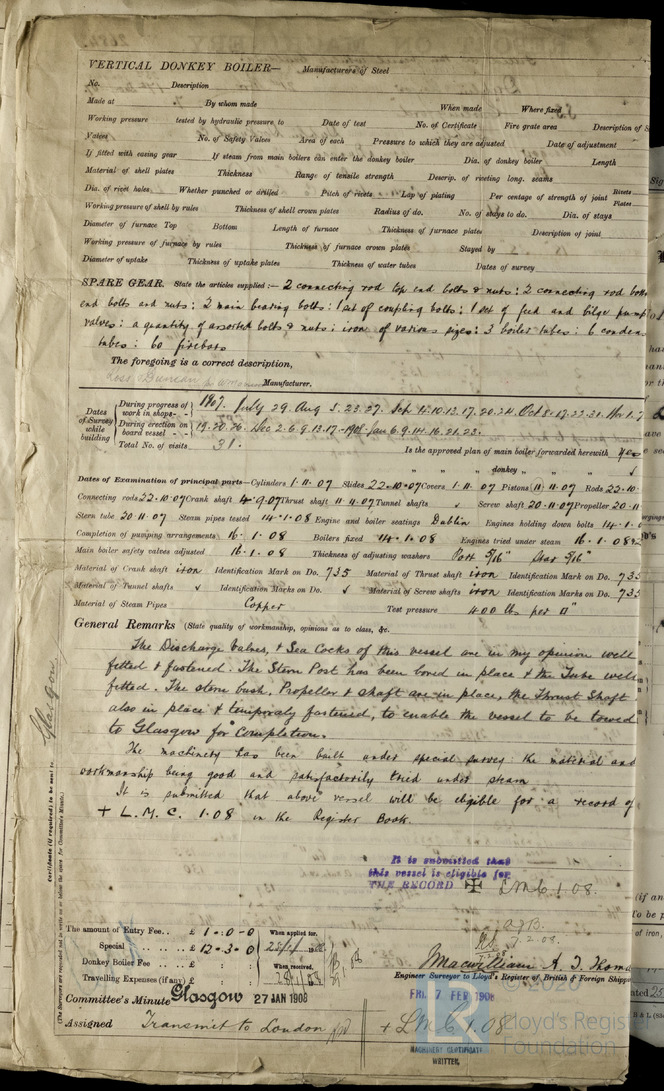 VERTICAL DONKEY BOILER— Manufacturers of Steel
No. Description
Made at By whom made When made Where fixed
Working pressure tested by hydraulic pressure to Date of test No. of Certificate Fire grate area Description of S
Valves No. of Safety Valves Area of each Pressure to which they are adjusted Date of adjustment
If fitted with easing gear If steam from main boilers can enter the donkey boiler Dia. of donkey boiler Length
Material of shell plates Thickness Range of tensile strength Descrip. of riveting long. seams
Dia. of rivet holes Whether punched or drilled Pitch of rivets Lap of plating Per centage of strength of joint Rivets Plates
Working pressure of shell by rules Thickness of shell crown plates Radius of do. No. of stays to do. Dia. of stays
Diameter of furnace Top Bottom Length of furnace Thickness of furnace plates Description of joint
Working pressure of furnace by rules Thickness of furnace crown plates Stayed by
Diameter of uptake Thickness of uptake plates Thickness of water tubes Dates of survey
SPARE GEAR. State the articles supplied:— 2 connecting rod top end bolts & nuts: 2 connecting rod bottom
end bolts and nuts: 2 main bearing bolts: 1 set of coupling bolts: 1 set of feed and bilge pump
valves: a quantity of assorted bolts & nuts: iron of various sizes: 3 boiler tubes: 6 conden
tubes: 60 firebars
The foregoing is a correct description,
Ross & Duncan Manufacturer.
Dates of Survey while building
During progress of work in shops - - 1907. July 29. Aug 5. 23. 27. Sep. 12. 10. 13. 17. 20. 24. Oct 5. 17. 22. 31. Nov 1. 7
During erection on board vessel - - 19. 20. 26. Dec 2. 6. 9. 13. 17. - 1908 - Jan 6. 9. 14. 16. 21. 23.
Total No. of visits 31.
Is the approved plan of main boiler forwarded herewith Yes
" " " donkey " " "
Dates of Examination of principal parts—Cylinders 1.11.07 Slides 22.10.07 Covers 1.11.07 Pistons 11.11.07 Rods 22.10.
Connecting rods 22.10.07 Crank shaft 4.9.07 Thrust shaft 11.11.07 Tunnel shafts ✓ Screw shaft 20.11.07 Propeller 20.11
Stern tube 20.11.07 Steam pipes tested 14.1.08 Engine and boiler seatings Dublin Engines holding down bolts 14.1.0
Completion of pumping arrangements 16.1.08 Boilers fixed 14.1.08 Engines tried under steam 16.1.08
Main boiler safety valves adjusted 16.1.08 Thickness of adjusting washers Port 5/16" Star 5/16"
Material of Crank shaft iron Identification Mark on Do. 735 Material of Thrust shaft iron Identification Mark on Do. 735
Material of Tunnel shafts ✓ Identification Marks on Do. ✓ Material of Screw shafts iron Identification Marks on Do. 735
Material of Steam Pipes Copper Test pressure 400 lbs per □"
General Remarks (State quality of workmanship, opinions as to class, &c.
The Discharge Valves, & Sea Cocks of this vessel are in my opinion well
fitted & fastened. The Stern Post has been bored in place & the Tube well
fitted. The stern bush, Propellor & shaft are in place, the Thrust Shaft
also in place & temporaly fastened, to enable the vessel to be towed
to Glasgow for Completion.
The machinery has been built under special survey: the material and
workmanship being good and satisfactorily tried under steam
It is submitted that above vessel will be eligible for a record of
+ L.M.C. 1.08 in the Register Book.
It is submitted that
this vessel is eligible for
THE RECORD ✠ LMC 1.08.
7.2.08.
The amount of Entry Fee.. £ 1.0.0 When applied for.
Special .. .. £ 12.3.0
Donkey Boiler Fee .. .. £ When received.
Travelling Expenses (if any) £
Macwilliam A. J. Thom
Engineer Surveyor to Lloyd's Register of British & Foreign Shipp
Committee's Minute Glasgow 27 JAN 1908
FRI. 7 FEB 1908
Assigned Transmit to London + LMC 1.08
MACHINERY CERTIFICATE
WRITTEN.
Lloyd's Register
Foundation
Glasgow
Certificate (if required) to be sent to
(The Surveyors are requested not to write on or below the space for Committee's Minute.)